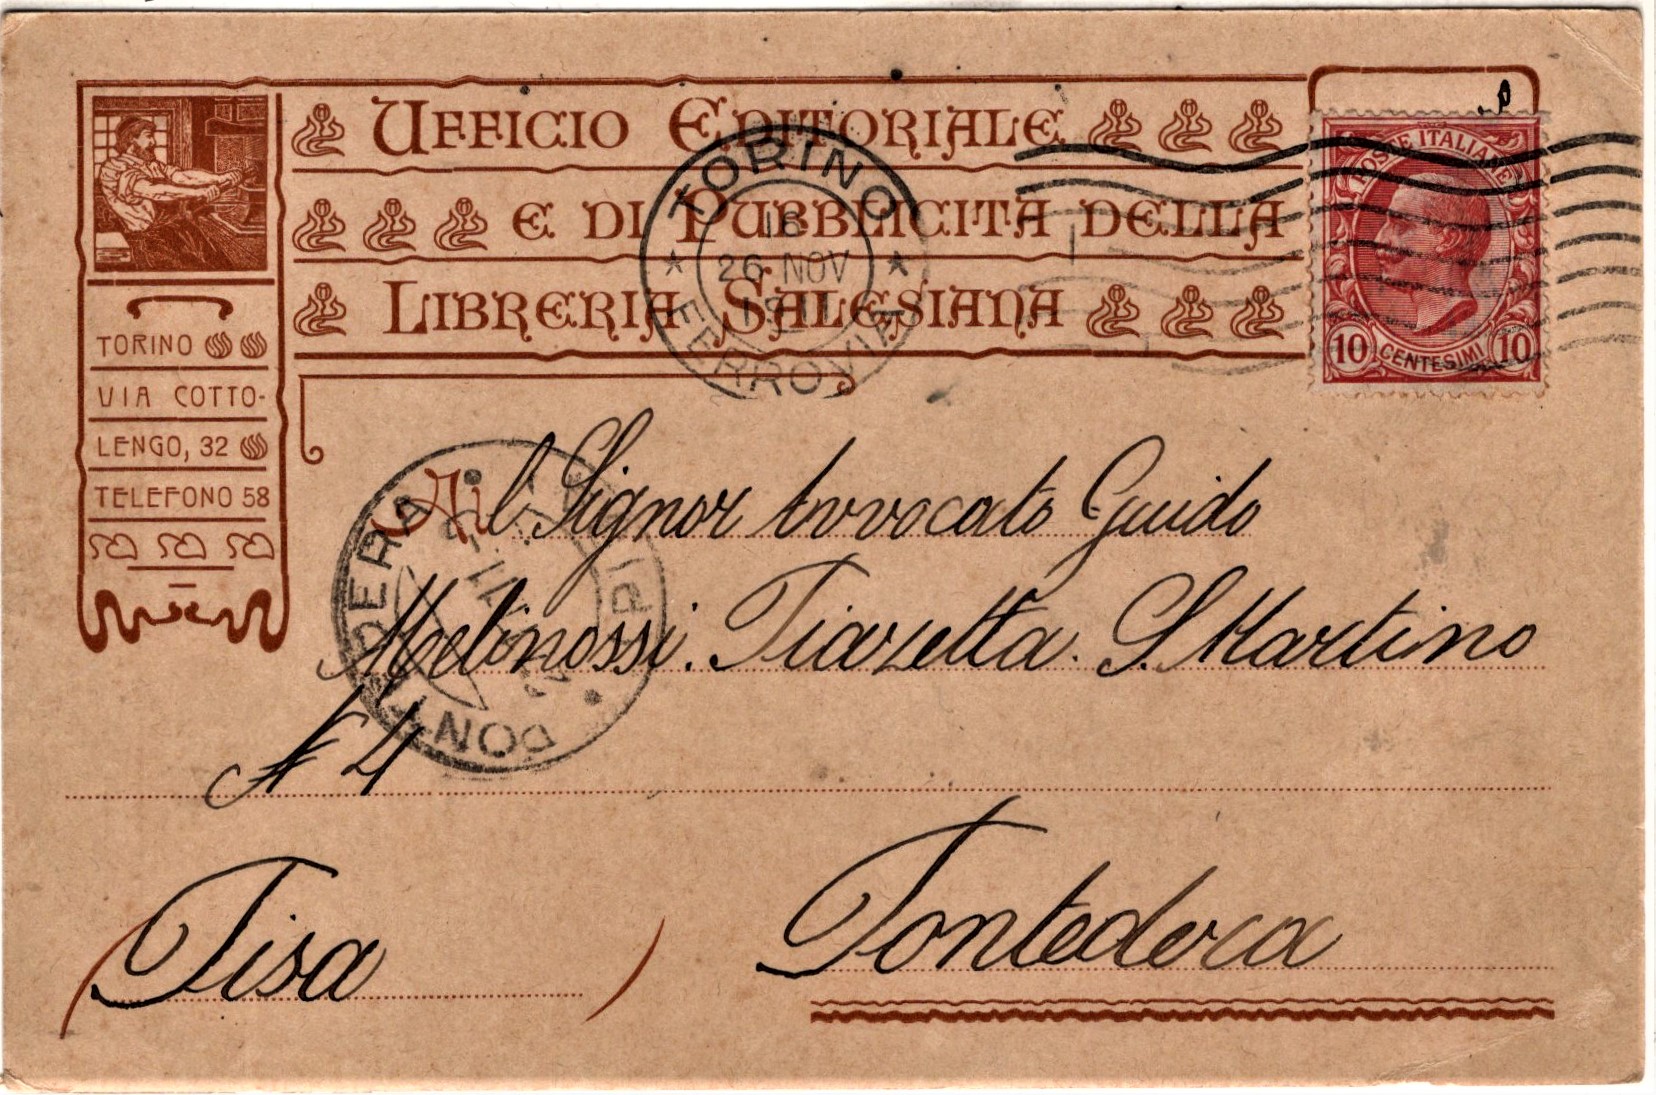 UFFICIO EDITORIALE
E DI PUBBLICITÀ DELLA
LIBRERIA SALESIANA
TORINO
VIA COTTO-
LENGO, 32
TELEFONO 58
POSTE ITALIANE
10 CENTESIMI 10
TORINO
16
26 NOV
FERROVIA
PONTEDERA
Al Signor Avvocato Guido
Melinossi. Piazzetta. S. Martino
N 4
(Pisa)
Pontedera